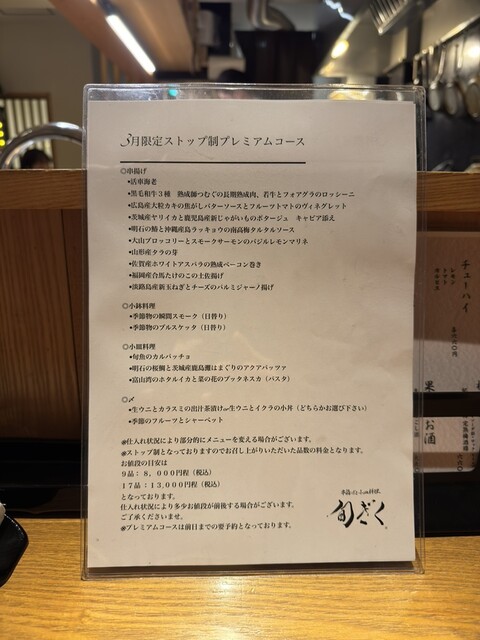 3月限定ストップ制プレミアムコース
◎串揚げ
•活車海老
•黒毛和牛3種　熟成師つむぐの長期熟成肉、若牛とフォアグラのロッシーニ
•広島産大粒カキの焦がしバターソースとフルーツトマトのヴィネグレット
•茨城産ヤリイカと鹿児島産新じゃがいものポタージュ　キャビア添え
•明石の鰆と沖縄産島ラッキョウの南高梅タルタルソース
•大山ブロッコリーとスモークサーモンのバジルレモンマリネ
•山形産タラの芽
•佐賀産ホワイトアスパラの熟成ベーコン巻き
•福岡産合馬たけのこの土佐揚げ
•淡路島産新玉ねぎとチーズのパルミジャーノ揚げ
◎小鉢料理
•季節物の瞬間スモーク（日替り）
•季節物のブルスケッタ（日替り）
◎小皿料理
•旬魚のカルパッチョ
•明石の桜鯛と茨城産鹿島灘はまぐりのアクアパッツァ
•富山湾のホタルイカと菜の花のプッタネスカ（パスタ）
◎〆
•生ウニとカラスミの出汁茶漬けor生ウニとイクラの小丼（どちらかお選び下さい）
•季節のフルーツとシャーベット
※仕入れ状況により部分的にメニューを変える場合がございます。
※ストップ制となっておりますのでお召し上がりいただいた品数の料金となります。
お値段の目安は
9品：8，000円程（税込）
17品：13,000円程（税込）
となっております。
仕入れ状況により多少お値段が前後する場合がございます。
ご了承くださいませ。
※プレミアムコースは前日までの要予約となっております。
旬ざく
チューハイ
レモン
お酒